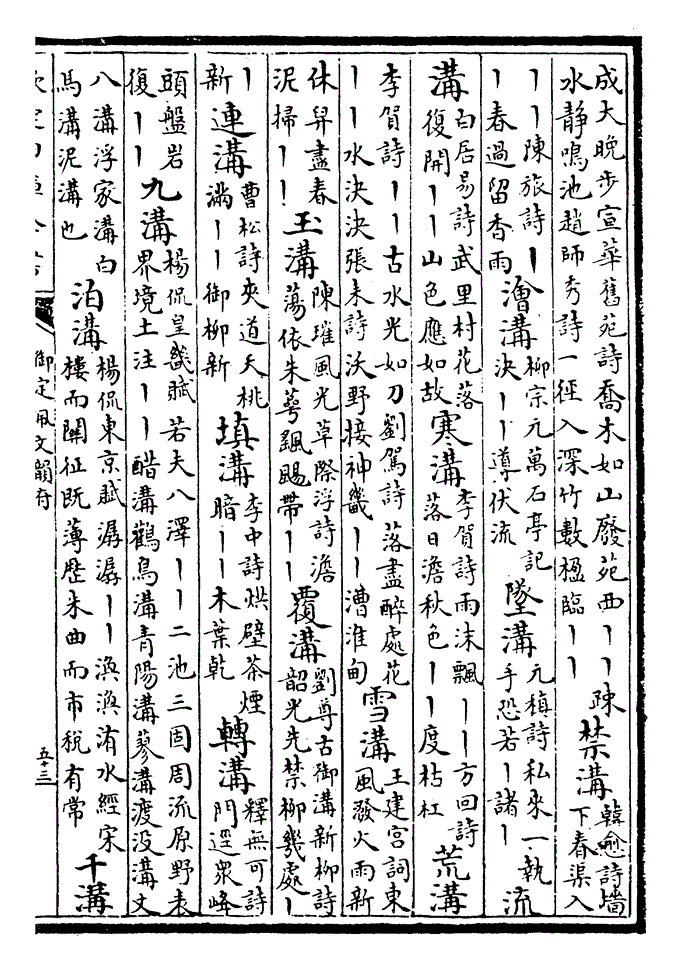 成大晚步宣華舊苑詩喬木如山廢苑西丨丨疎
水靜鳴池趙師秀詩一徑入深竹數楹臨丨丨
禁溝
韓愈詩墻
下春渠入
丨丨陳旅詩丨
丨春過留香雨
澮溝
柳宗元萬石亭記
決丨丨導伏流
墜溝
元稹詩私來一執
手恐若丨諸丨
流
溝
白居易詩武里村花落
復開丨丨山色應如故
寒溝
李賀詩雨沫飄丨丨方回詩
落日澹秋色丨丨度枯杠
荒溝
李賀詩丨丨古水光如刀劉駕詩落盡醉處花
丨丨水決決張耒詩沃野接神畿丨丨漕淮甸
雪溝
王建宮詞東
風潑火雨新
休舁盡春
泥掃丨丨
玉溝
陳璀風光草際浮詩澹
蕩依朱萼颻颺帶丨丨
覆溝
劉尊古御溝新柳詩
韶光先禁柳幾處丨
丨
新
連溝
曹松詩夾道夭桃
滿丨丨御柳新
填溝
李中詩烘壁茶煙
暗丨丨木葉乾
轉溝
釋無可詩
門逕衆峰
頭盤岩
復丨丨
九溝
楊侃皇畿賦若夫八澤丨丨二池三固周流原野表
界境土注丨丨醋溝鸛鳥溝青陽溝蓼溝渡沒溝文
八溝浮家溝白
馬溝泥溝也
泊溝
楊侃東京賦潺潺丨丨渙渙洧水經宋
樓而關征既薄歷朱曲而市稅有常
千溝
欽定四庫全書
御定佩文韻府
五十三